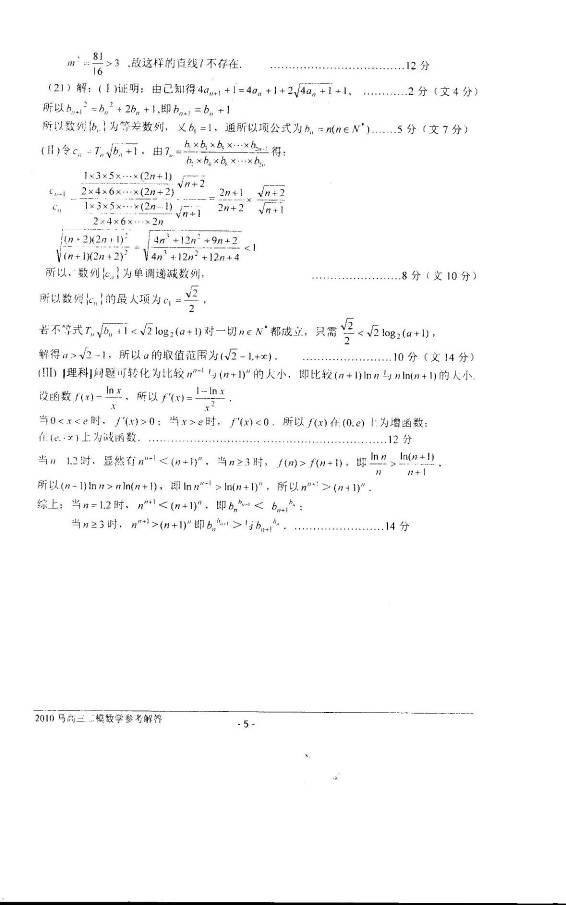 m² = 81/16 > 3 ,故这样的直线 l 不存在. ……………………………12 分
(21) 解: (Ⅰ)证明: 由已知得 4aₙ₊₁ + 1 = 4aₙ + 1 + 2√(4aₙ + 1) + 1, …………2 分 (文 4 分)
所以 bₙ₊₁² = bₙ² + 2bₙ + 1,即 bₙ₊₁ = bₙ + 1
所以数列{bₙ}为等差数列, 又 b₁ = 1, 通所以项公式为 bₙ = n(n∈N*)……..5 分 (文 7 分)
(Ⅱ)令 cₙ = Tₙ√(bₙ + 1), 由 Tₙ = (b₁×b₃×b₅×⋯×b₂ₙ₋₁)/(b₂×b₄×b₆×⋯×b₂ₙ) 得:
cₙ₊₁/cₙ = [(1×3×5×⋯×(2n+1))/(2×4×6×⋯×(2n+2)) √(n+2)]/[(1×3×5×⋯×(2n-1))/(2×4×6×⋯×2n) √(n+1)] = (2n+1)/(2n+2) × √(n+2)/√(n+1)
√((n+2)(2n+1)²/((n+1)(2n+2)²)) = √((4n³+12n²+9n+2)/(4n³+12n²+12n+4)) < 1
所以、数列{cₙ}为单调递减数列, ……………………8 分 (文 10 分)
所以数列{cₙ}的最大项为 c₁ = √2/2 ,
若不等式 Tₙ√(bₙ + 1) < √2 log₂(a+1) 对一切 n∈N* 都成立, 只需 √2/2 < √2 log₂(a+1),
解得 a > √2 - 1, 所以 a 的取值范围为 (√2 - 1,+∞). ……………………10 分 (文 14 分)
(Ⅲ)【理科】问题可转化为比较 nⁿ⁺¹ 与 (n+1)ⁿ 的大小, 即比较 (n+1)ln n 与 n ln(n+1) 的大小.
设函数 f(x) = ln x/x , 所以 f'(x) = (1-ln x)/x² .
当 0 < x < e 时, f'(x) > 0; 当 x > e 时, f'(x) < 0. 所以 f(x) 在 (0,e) 上为增函数;
在 (e,+∞) 上为减函数. ……………………………………………………12 分
当 n = 1,2 时, 显然有 nⁿ⁺¹ < (n+1)ⁿ, 当 n≥3 时, f(n) > f(n+1), 即 ln n/n > ln(n+1)/(n+1) ,
所以 (n+1)ln n > n ln(n+1), 即 ln nⁿ⁺¹ > ln(n+1)ⁿ, 所以 nⁿ⁺¹ > (n+1)ⁿ.
综上: 当 n = 1,2 时, nⁿ⁺¹ < (n+1)ⁿ, 即 bₙ^(bₙ₊₁) < bₙ₊₁^(bₙ) ;
当 n≥3 时, nⁿ⁺¹ > (n+1)ⁿ 即 bₙ^(bₙ₊₁) > 与 bₙ₊₁^(bₙ) . ……………………14 分
2010 马高三二模数学参考解答
- 5 -